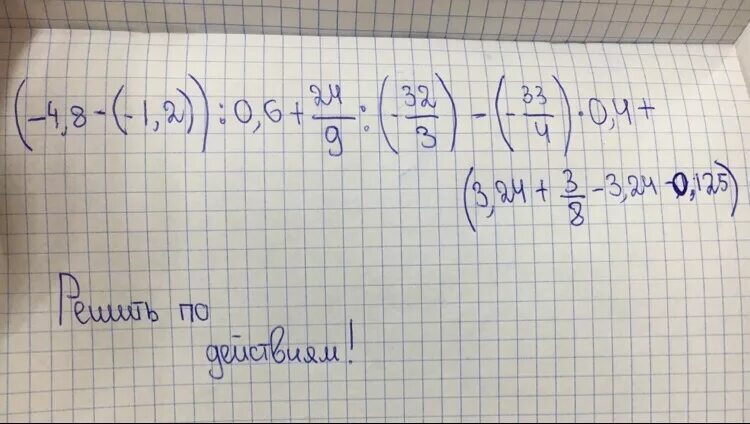 (-4,8-(-1,2)):0,6+24/9:(-32/3)-(-33/4)·0,4+
(3,24+3/8-3,24-0,125)
Решить по
действиям!